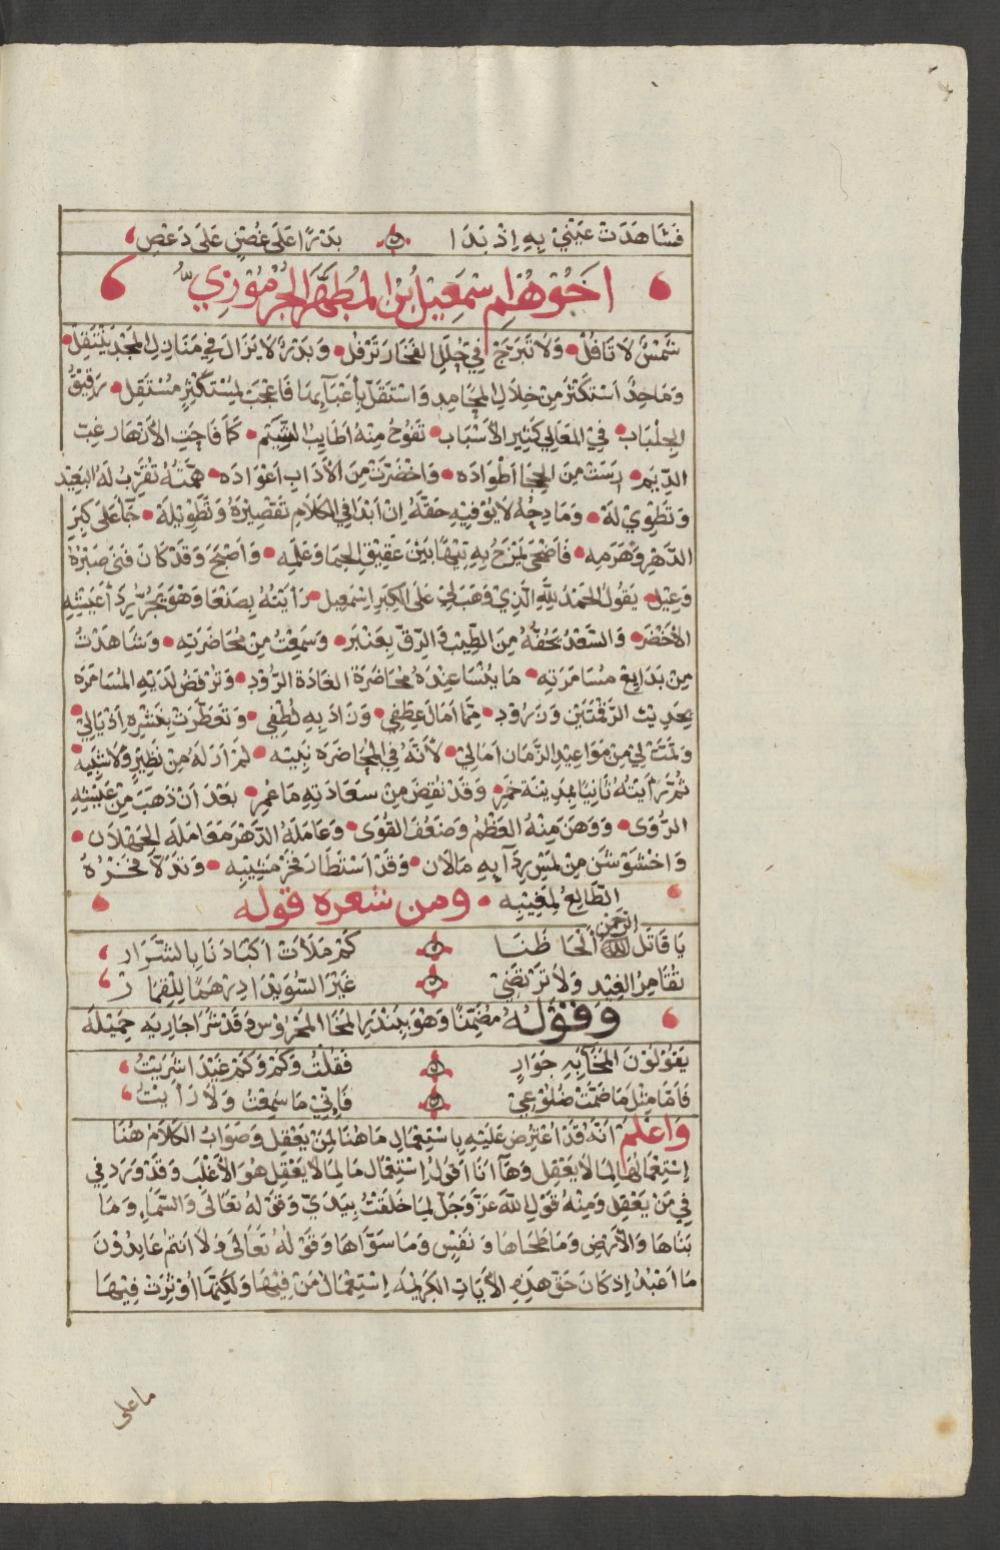 فَشَاهَدَتْ عَيْنِيْ بِهِ اِذْ بَدَا بَدْرًا عَلَى غُصْنٍ عَلَى دَعْصِ
اَخُوْهُمْ اِسْمَعِيْلُ بْنُ المُطَهَّرِ الجُرْمُوْزِي
شَمْسٌ لاَ تَافُلْ وَلاَ تَبْرَحْ فِي حُلَلِ الفَخَارِ تَرْفُلْ وَبَدْرٌ لاَ يَزَالُ فِي مَنَازِلِ المَجْدِ يَنْتَقِلْ
وَمَاجِدٌ اَسْتَكْثَرَ مِنْ خِلاَلِ المَحَامِدِ وَاسْتَقَلَّ بِأَعْبَآئِهَا فَاعْجَبْ لِمُسْتَكْثِرٍ مُسْتَقِل رَقِيْقُ
الجِلْبَاب فِي المَعَالِي كَثِيْرِ الأَسْبَاب تَفُوْحُ مِنْهُ اَطَايِبُ الشِّيَم كَمَا فَاحَتِ الأَزْهَارُ غِبَّ
الدِّيَم رَسَتْ مِنَ الحِجَا اَطْوَادَه وَاخْضَرَّتْ مِنَ الأَدَابِ اَعْوَادَه هِمَّتُهُ تُقَرِّبُ لَهُ البَعِيْد
وَتَطْوِيْ لَهُ وَمَادِحُهُ لاَ يُوْفِيْهِ حَقَّهُ اِنْ اَبْدَا فِي الكَلاَمِ تَقْصِيْرَهُ وَتَطْوِيْلَهُ جَآءَ عَلَى كِبَرِ
الدَّهْرِ وَهَرَمِه فَاَضْحَى يَمْرَحُ بِهِ تِيْهًا بَيْنَ عَقِيْقِ الحِمَا وَعَلَمِه وَاَصْبَحَ وَقَدْ كَانَ فَنِيَ صَبْرُهُ
وَعِيْل يَقُولُ الحَمْدُ لِلَّهِ الَّذِيْ وَهَبَ لِيْ عَلَى الكِبَرِ اِسْمَعِيل رَأَيْتُهُ بِصَنْعَا وَهْوَ يَجُرُّ رِدَآءَ عَيْشِهِ
الأَخْضَر وَالسَّعْدُ يَحُفُّهُ مِنَ الطِّيْبِ وَالرِّقِّ بِعَنْبَر وَسَمِعْتُ مِنْ مُحَاضَرَتِه وَشَاهَدْتُ
مِنْ بَدَايِعِ مُسَامَرَتِه مَا يُنْسَا عِنْدَهُ مُحَاضَرَةُ الغَادَةِ الرُّوْد وَتُرْفَضُ لَدَيْهِ المُسَامَرَه
بِحَدِيْثِ الرَّقْمَتَيْنِ وَزَرُوْد مِمَّا اَمَالَ عِطْفِي وَزَادَ بِهِ لُطْفِي وَتَعَطَّرَتْ بِنَشْرِهِ اَذْيَالِيْ
وَنَمَتْ لِيْ مِنْ مَوَاعِيْدِ الزَّمَانِ اَمَالِيْ لأَنَّهُ فِي المُحَاضَرَه نَبِيْه لَمْ اَرَ لَهُ مِنْ نَظِيْرٍ وَلاَ شَبِيْه
ثُمَّ رَأَيْتُهُ ثَانِيًا بِمَدِيْنَةِ خَمِر وَقَدْ نَقَصَ مِنْ سَعَادَتِهِ مَا عَمِر بَعْدَ اَنْ ذَهَبَ مِنْ عَيْشِهِ
الرُّوَى وَوَهَنَ مِنْهُ العَظْمُ وَضَعُفَ القُوَى وَعَامَلَهُ الدَّهْرُ مُعَامَلَةَ الجَهْلاَن
وَاخْشَوْشَنَ مِنْ لَمْسِ رِدَآئِهِ مَا لاَن وَقَدْ اَسْتَطَارَ فَجْرُ مَشِيْبِه وَتَدَلاَّ فَجْرُهُ
الطَّالِعُ لِمَغِيْبِه ومن شعره قوله
يَا قَاتَلَ اللهُ الرَّحْمَنُ اَلْحَاظَنَا كَمْ مَلأَتْ اَكْبَادَنَا بِالشَّرَار
تُقَامِرُ الغِيْدَ وَلاَ تَرْتَضِيْ غَيْرَ السُّوَيْدَا دِرْهَمًا لِلْقِمَار
وَقَوْلُهُ مُضَمِّنًا وَهْوَ بِبَنْدَرِ المَخَا المَحْرُوْس وَقَدْ شَرَا جَارِيَه جَمِيْلَه
يَقُوْلُوْنَ المَخَا بِهِ جَوَارٍ فَقُلْتُ وَكَمْ وَكَمْ عَبْدًا شَرَيْتُ
فَاَمَّا مِثْلُ مَا ضَمَّتْ ضُلُوْعِيْ فَاِنِّيْ مَا سَمِعْتُ وَلاَ رَأَيْتُ
وَاعْلَم اَنَّهُ قَدْ اعْتُرِضَ عَلَيْهِ بِاسْتِعْمَالِ مَا هُنَا لِمَنْ يَعْقِل وَصَوَابُ الكَلاَمِ هُنَا
اِسْتِعْمَالُهَا لِمَا لاَ يَعْقِل وَهَآ اَنَا اَقُولُ اِسْتِعْمَال مَا لِمَا لاَ يَعْقِل هُوَ الأَغْلَب وَقَدْ وَرَدَ فِي
فِي مَنْ يَعْقِل وَمِنْهُ قَوْلُ اللَّهِ عَزَّ وَجَلَّ لِمَا خَلَقْتُ بِيَدَيَّ وَقَوْلُهُ تَعَالَى وَالسَّمَآءِ وَمَا
بَنَاهَا وَالأَرْضِ وَمَا طَحَاهَا وَنَفْسٍ وَمَا سَوَّاهَا وَقَوْلُهُ تَعَالَى وَلاَ اَنْتُمْ عَابِدُوْنَ
مَا اَعْبُدُ اِذْ كَانَ حَقّ هَذِهِ الأَيَاتِ الكَرِيْمَه اِسْتِعْمَالُ مَنْ فِيْهَا وَلَكِنَّهَا اُوْثِرَتْ فِيْهَا
ما على